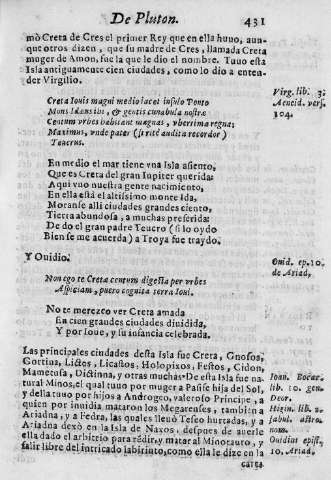 De Pluton. 431
mò Creta de Cres el primer Rey que en ella huuo, aun-
que otros dizen, que su madre de Cres, llamada Creta
muger de Amon, fue la que le dio el nombre. Tuuo esta
Isla antiguamente cien ciudades, como lo dio a enten-
der Virgilio
Virg. lib. 3.
Aeneid. vers.
104.
Creta Iouis magni medio iacet insula Ponto
Mons Idaeus ubi, & gentis cunabula nostrae
Centum vrbes habitant magnas, vberrima regna;
Maximus, unde pater (si rite audita recordor)
Teucrus.
En medio el mar tiene vna Isla asiento,
Que es Creta del gran Iupiter querida:
Aqui vuo nuestra gente nacimiento,
En ella està el altissimo monte Ida,
Moranse alli ciudades grandes ciento,
Tierra abundosa, a muchas preferida:
De do el gran padre Teucro (si lo oydo
Bien se me acuerda) a Troya fue traydo.
Y Ouidio.
Ouid. ep. 10.
de Ariad.
Non ego te Cretae centum digesta per vrbes
Aspiciam, puero cognita terra Ioui.
No te merezco ver Creta amada
En cien grandes ciudades diuidida,
Y por Ioue, y su infancia celebrada.
Las principales ciudades desta Isla fue Creta, Gnosos,
Gortius, Lictes, Licastos, Holopixos, Festos, Cidon,
Mametusa, Dictinna, y otras muchas. De esta Isla fue na-
tural Minos, el qual tuuo por muger a Pasife hija del Sol,
y della tuuo por hijos a Androgeo, valeroso Principe, a
quien por inuidia mataron los Megarenses, tambien a
Ariadna, y a Fedra, las quales lleuò Teseo hurtadas, y a
Ariadna dexò en la Isla de Naxos, despues de auerle
ella dado el arbitrio para rēdir, y matar al Minotauro, y
salir libre del intricado labirinto, como ella le dize en la
Ioan. Bocac.
lib. 10. gen.
Deor.
Higin. lib. 2.
fabul. astro.
nom.
Ouidius epist.
10. Ariad.
carta